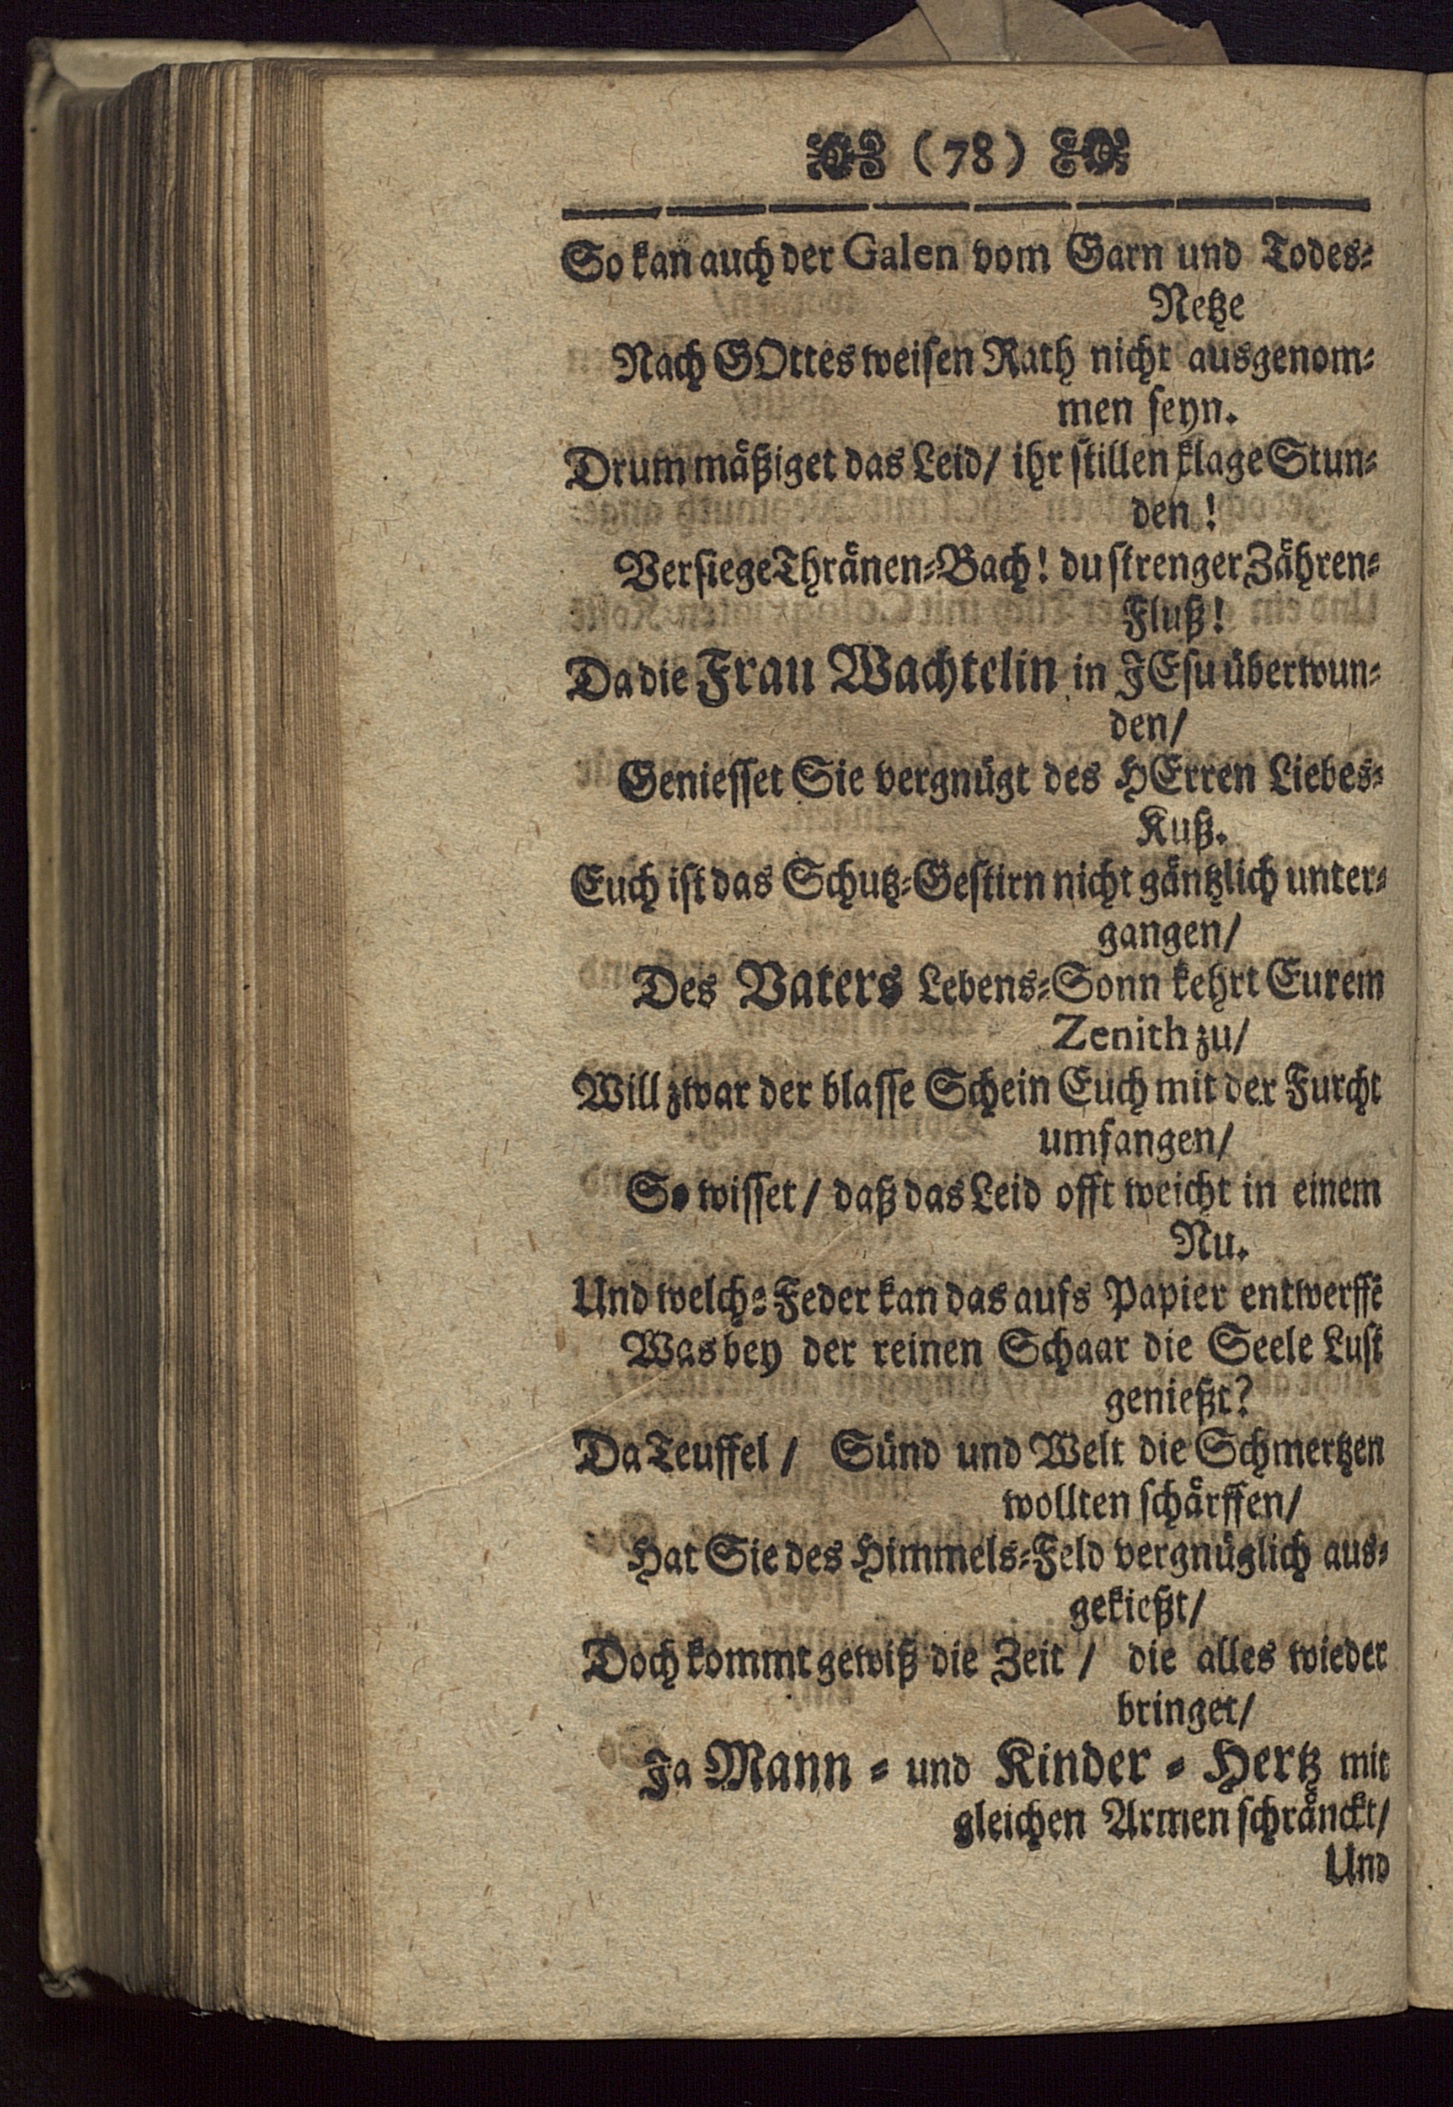 (78)
So kan auch der Galen vom Garn und Todes-
Netze
Nach GOttes weisen Rath nicht ausgenom-
men seyn.
Drum mäßiget das Leid/ ihr stillen klage Stun-
den!
Versiege Thränen-Bach! du strenger Zähren-
Fluß!
Da die Frau Wachtelin in JEsu überwun-
den/
Geniesset Sie vergnügt des HErren Liebes-
Kuß.
Euch ist das Schutz-Gestirn nicht gäntzlich unter-
gangen/
Des Vaters Lebens-Sonn kehrt Eurem
Zenith zu/
Will zwar der blasse Schein Euch mit der Furcht
umfangen/
So wisset/ daß das Leid offt weicht in einem
Nu.
Und welch-Feder kan das aufs Papier entwerffē
Was bey der reinen Schaar die Seele Lust
genießt?
Da Teuffel/ Sünd und Welt die Schmertzen
wollten schärffen/
Hat Sie des Himmels-Feld vergnüglich aus-
gekießt/
Doch kommt gewiß die Zeit/ die alles wieder
bringet/
Ja Mann- und Kinder-Hertz mit
gleichen Armen schränckt/
Und